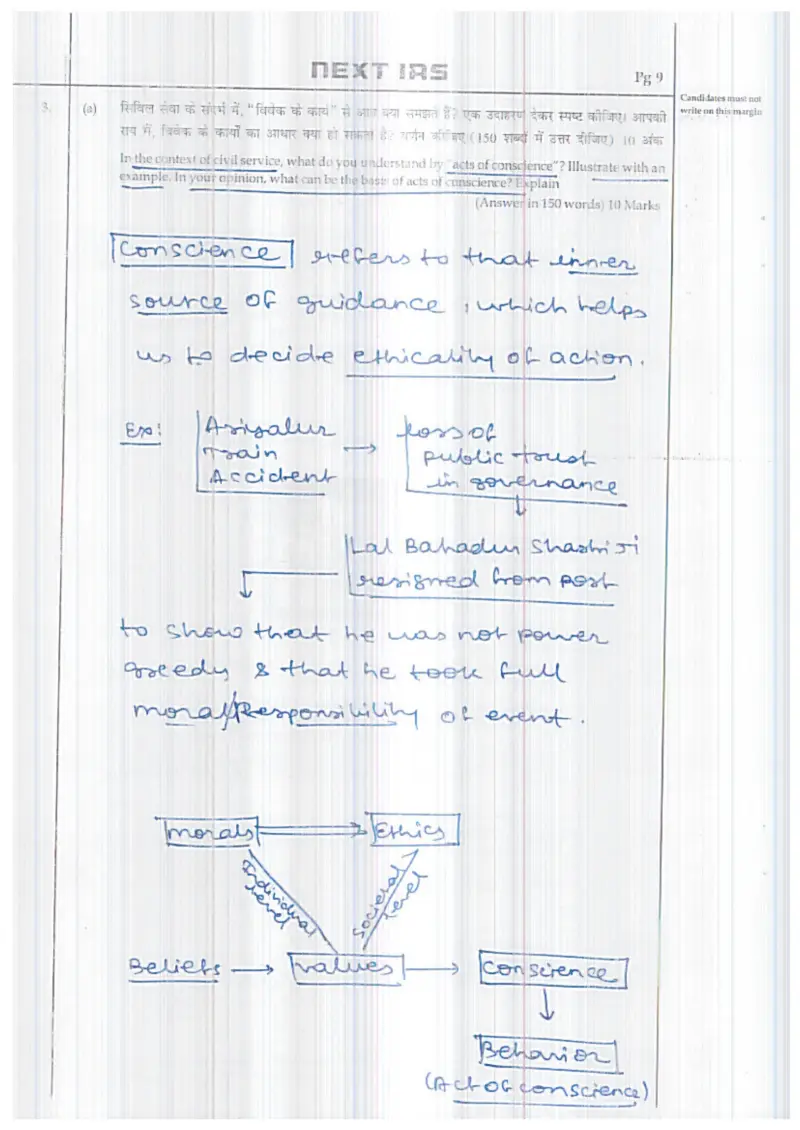 NEXT IRS
Pg 9
Candidates must not
write on this margin
3. (a) सिविल सेवा के संदर्भ में, "विवेक के कार्य" से आप क्या समझते हैं? एक उदाहरण देकर स्पष्ट कीजिए। आपकी
राय में, विवेक के कार्यों का आधार क्या हो सकता है? वर्णन कीजिए। (150 शब्दों में उत्तर दीजिए) 10 अंक
In the context of civil service, what do you understand by "acts of conscience"? Illustrate with an
example. In your opinion, what can be the basis of acts of conscience? Explain
(Answer in 150 words) 10 Marks
Conscience refers to that inner
source of guidance, which helps
us to decide ethicality of action.
Ex:
Ariyalur
Train
Accident
→
loss of
public trust
in governance
Lal Bahadur Shastri Ji
resigned from post
to show that he was not power
greedy & that he took full
moral/Responsibility of event.
morals
Ethics
Individual
level
Societal
level
Beliefs → values → Conscience
Behavior
(Act of conscience)